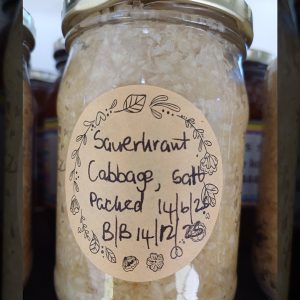 Sauerkraut
Cabbage, Salt
Packed 14/6/25
B/B 14/12/25